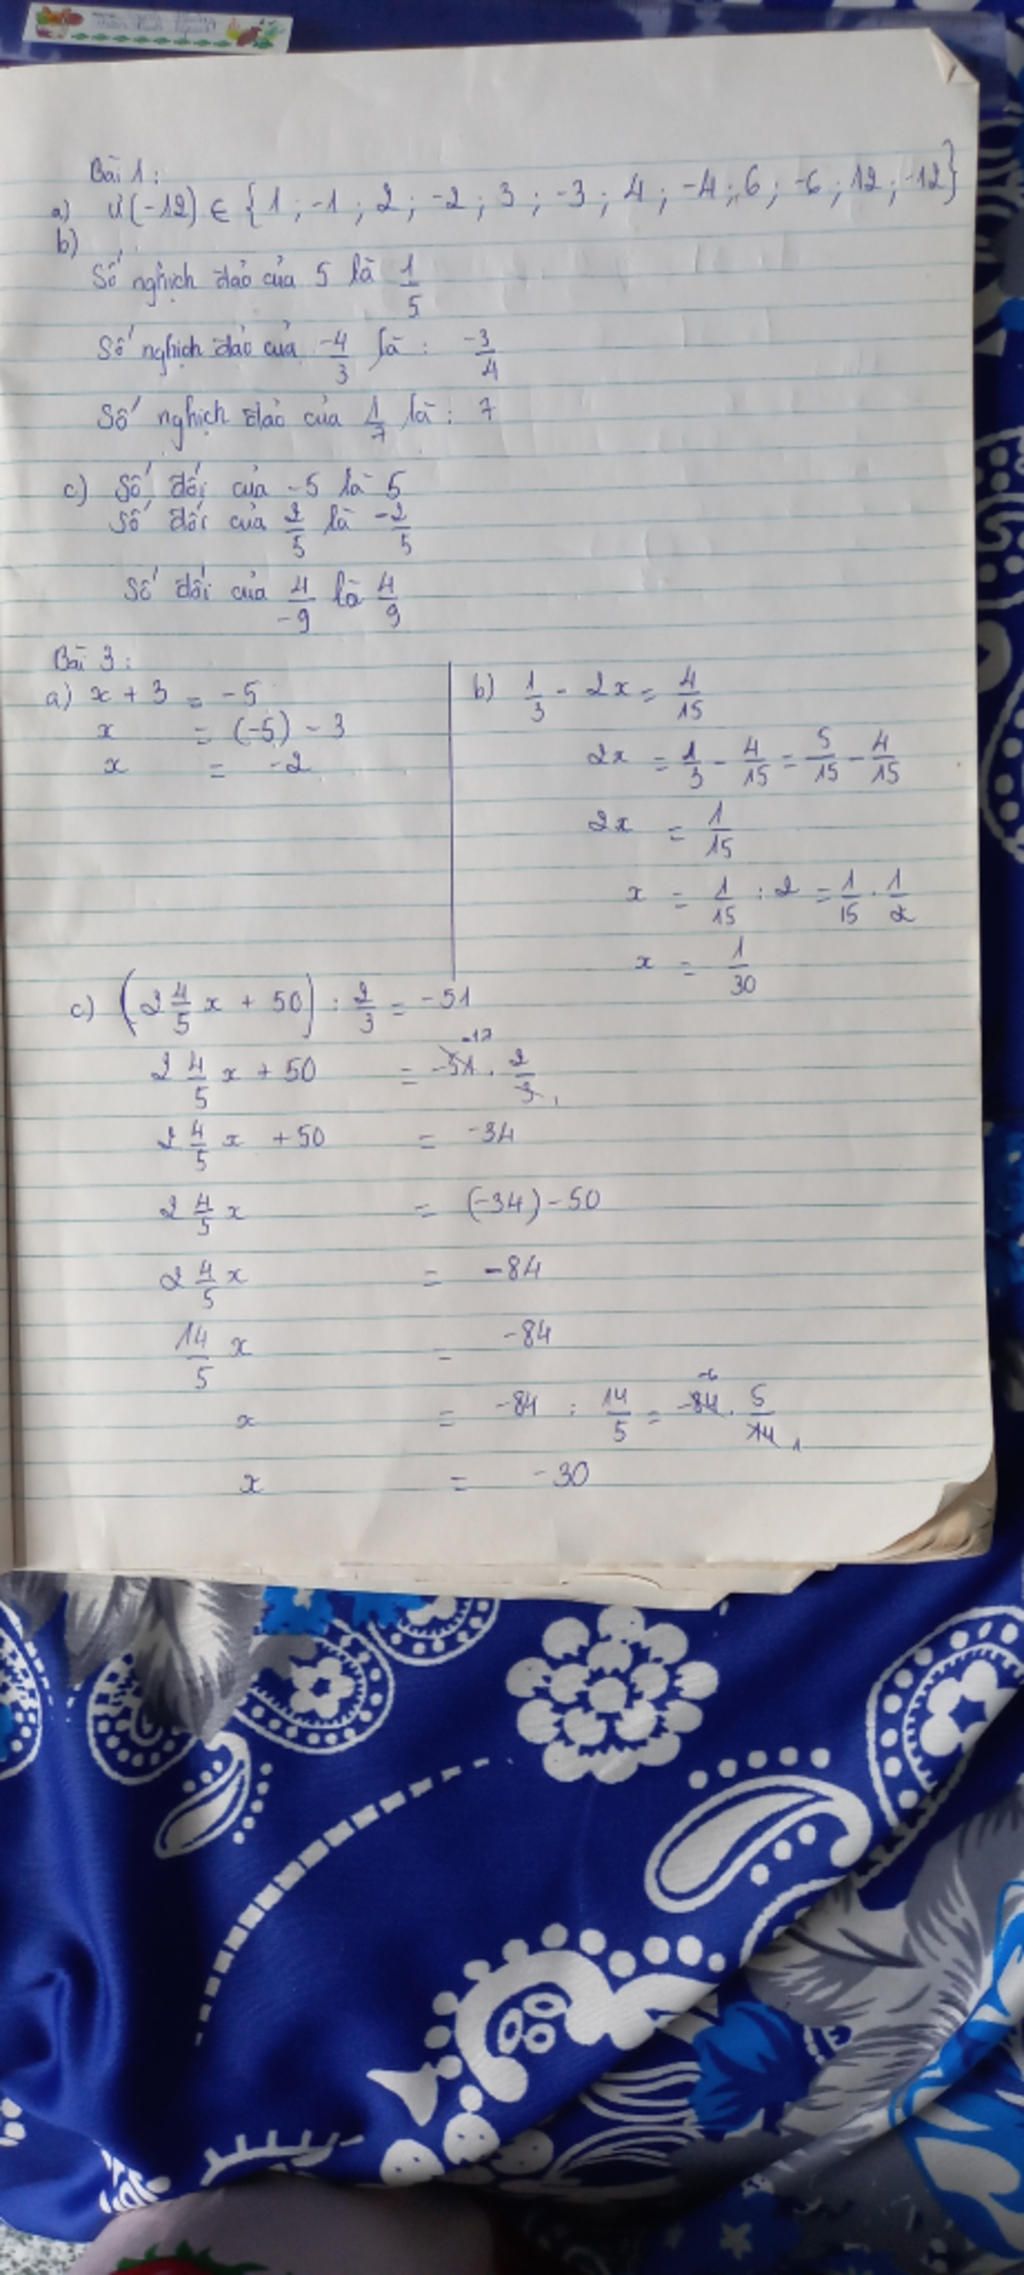 Bài 1:
a) Ư(-12) ∈ {1 ; -1 ; 2 ; -2 ; 3 ; -3 ; 4 ; -4 ; 6 ; -6 ; 12 ; -12}
b)
Số nghịch đảo của 5 là 1/5
Số nghịch đảo của -4/3 là : -3/4
Số nghịch đảo của 1/7 là : 7
c) Số đối của -5 là 5
Số đối của 2/5 là -2/5
Số đối của 4/-9 là 4/9
Bài 3:
a) x + 3 = -5
x = (-5) - 3
x = -2
b) 1/3 - 2x = 4/15
2x = 1/3 - 4/15 = 5/15 - 4/15
2x = 1/15
x = 1/15 : 2 = 1/15 . 1/2
x = 1/30
c) (2 4/5 x + 50) : 2/3 = -51
-17
2 4/5 x + 50 = -51 . 2/3 1
2 4/5 x + 50 = -34
2 4/5 x = (-34) - 50
2 4/5 x = -84
14/5 x = -84
-6
x = -84 : 14/5 = -84 . 5/14 1
x = -30